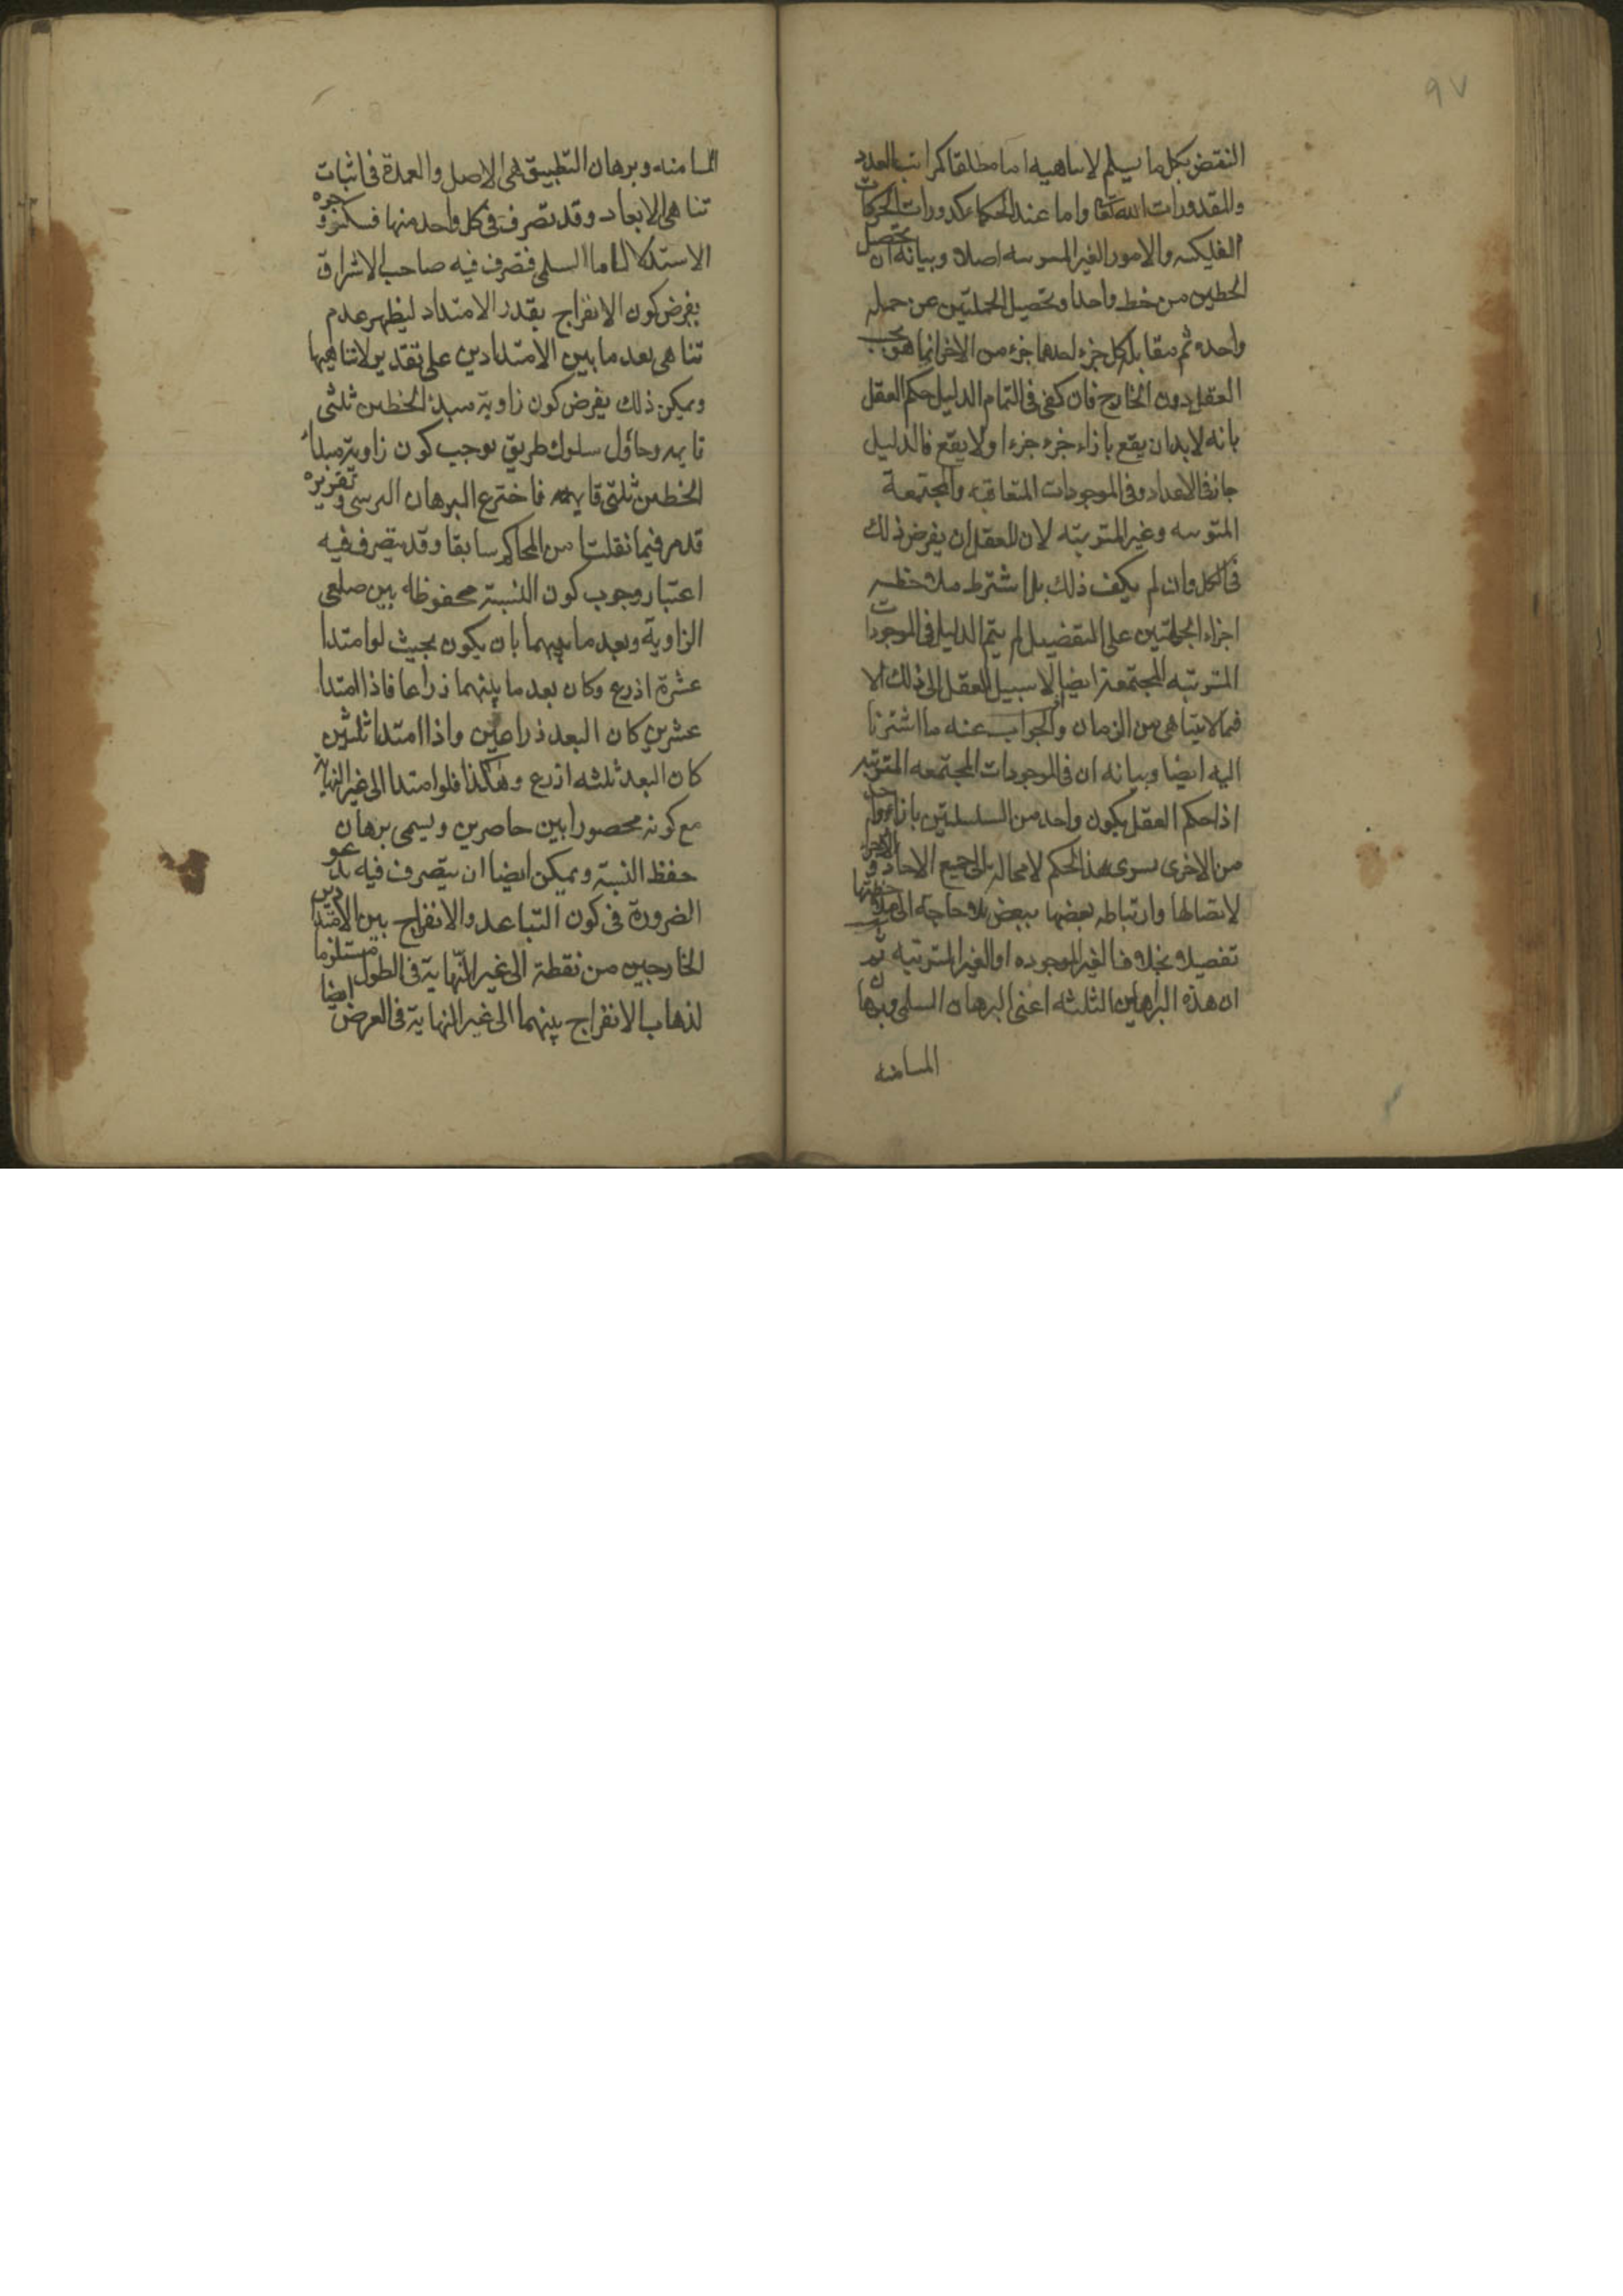 ٩٧
النقض بكل ما يسلم لاتناهيه اما مطلقا كمراتب العدد
والمقدورات الله تعا واما عند الحكماء كدورات الحركات
الفلكيه والامور الغير المترتبه اصلا وبيانه ان تحصل
الخطين من خط واحد وتحصيل الجملتين من جمله
واحده ثم مقابله كل جزء احدها جزء من الاخر انما هو بحسب
العقل دون الخارج فان كفى فى التمام الدليل حكم العقل
بانه لابد ان يقع بازاء جزء جزءا ولا يقع فالدليل
جاز فى الاعداد وفى الموجودات المتعاقبه والمجتمعة
المترتبه وغير المترتبه لان للعقل ان يفرض ذلك
فى الكل وان لم يكف ذلك بل اشترط ملاحظه
اجزاء الجملتين على التفضيل لم يتم الدليل فى الموجودات
المترتبه المجتمعة ايضا لا سبيل للعقل الى ذلك الا
فيما لا يتناهى من الزمان والجواب عنه ما اشترنا
اليه ايضا وبيانه ان فى الموجودات المجتمعه المترتبه
اذا حكم العقل بكون واحد من السلسلتين بازاء واحد
من الاخرى يسرى هذا الحكم لامحاله الى جميع الاحاد و الاجزاء
لاتصالها وارتباطه بعضها ببعض بلا حاجة الى ملاحظتها
تفصيلا بخلاف الغير الموجوده او الغير المترتبه ثم
ان هذه البراهين الثلثه اعنى البرهان السلمى وبرهان
المسامته
المسامته وبرهان التطبيق هى الاصل والعمدة فى اثبات
تناهى الابعاد وقد تصرف فى كل واحد منها فسكثر وجوه
الاستدلال اما السلمى فتصرف فيه صاحب الاشراق
بفرض كون الانفراج بقدر الامتداد ليظهر عدم
تناهى بعد ما بين الامتدادين على تقدير لاتناهيها
ويمكن ذلك بفرض كون زاوية مبدء الخطين ثلثى
قايمه وحاول سلوك طريق يوجب كون زاوية مبدأ
الخطين ثلثى قايمه فاخترع البرهان الترسى و تقريره
قد مر فيما نقلت من المحاكم سابقا وقد يتصرف فيه
اعتبار وجوب كون النسبة محفوظه بين ضلعى
الزاوية وبعد ما بينهما بان يكون بحيث لو امتدا
عشرة اذرع وكان بعد ما بينهما ذراعا فاذا امتدا
عشرين كان البعد ذراعين واذا امتدا ثلثين
كان البعد ثلثه اذرع وهكذا فلو امتدا الى غير النهاية
مع كونه محصورا بين حاصرين ويسمى برهان
حفظ النسبة ويمكن ايضا ان يتصرف فيه بدعو
الضرورة فى كون التباعد والانفراج بين الامتدادين
الخارجين من نقطة الى غير النهاية فى الطول مستلزما
لذهاب الانفراج بينهما الى غير النهاية فى العرض ايضا